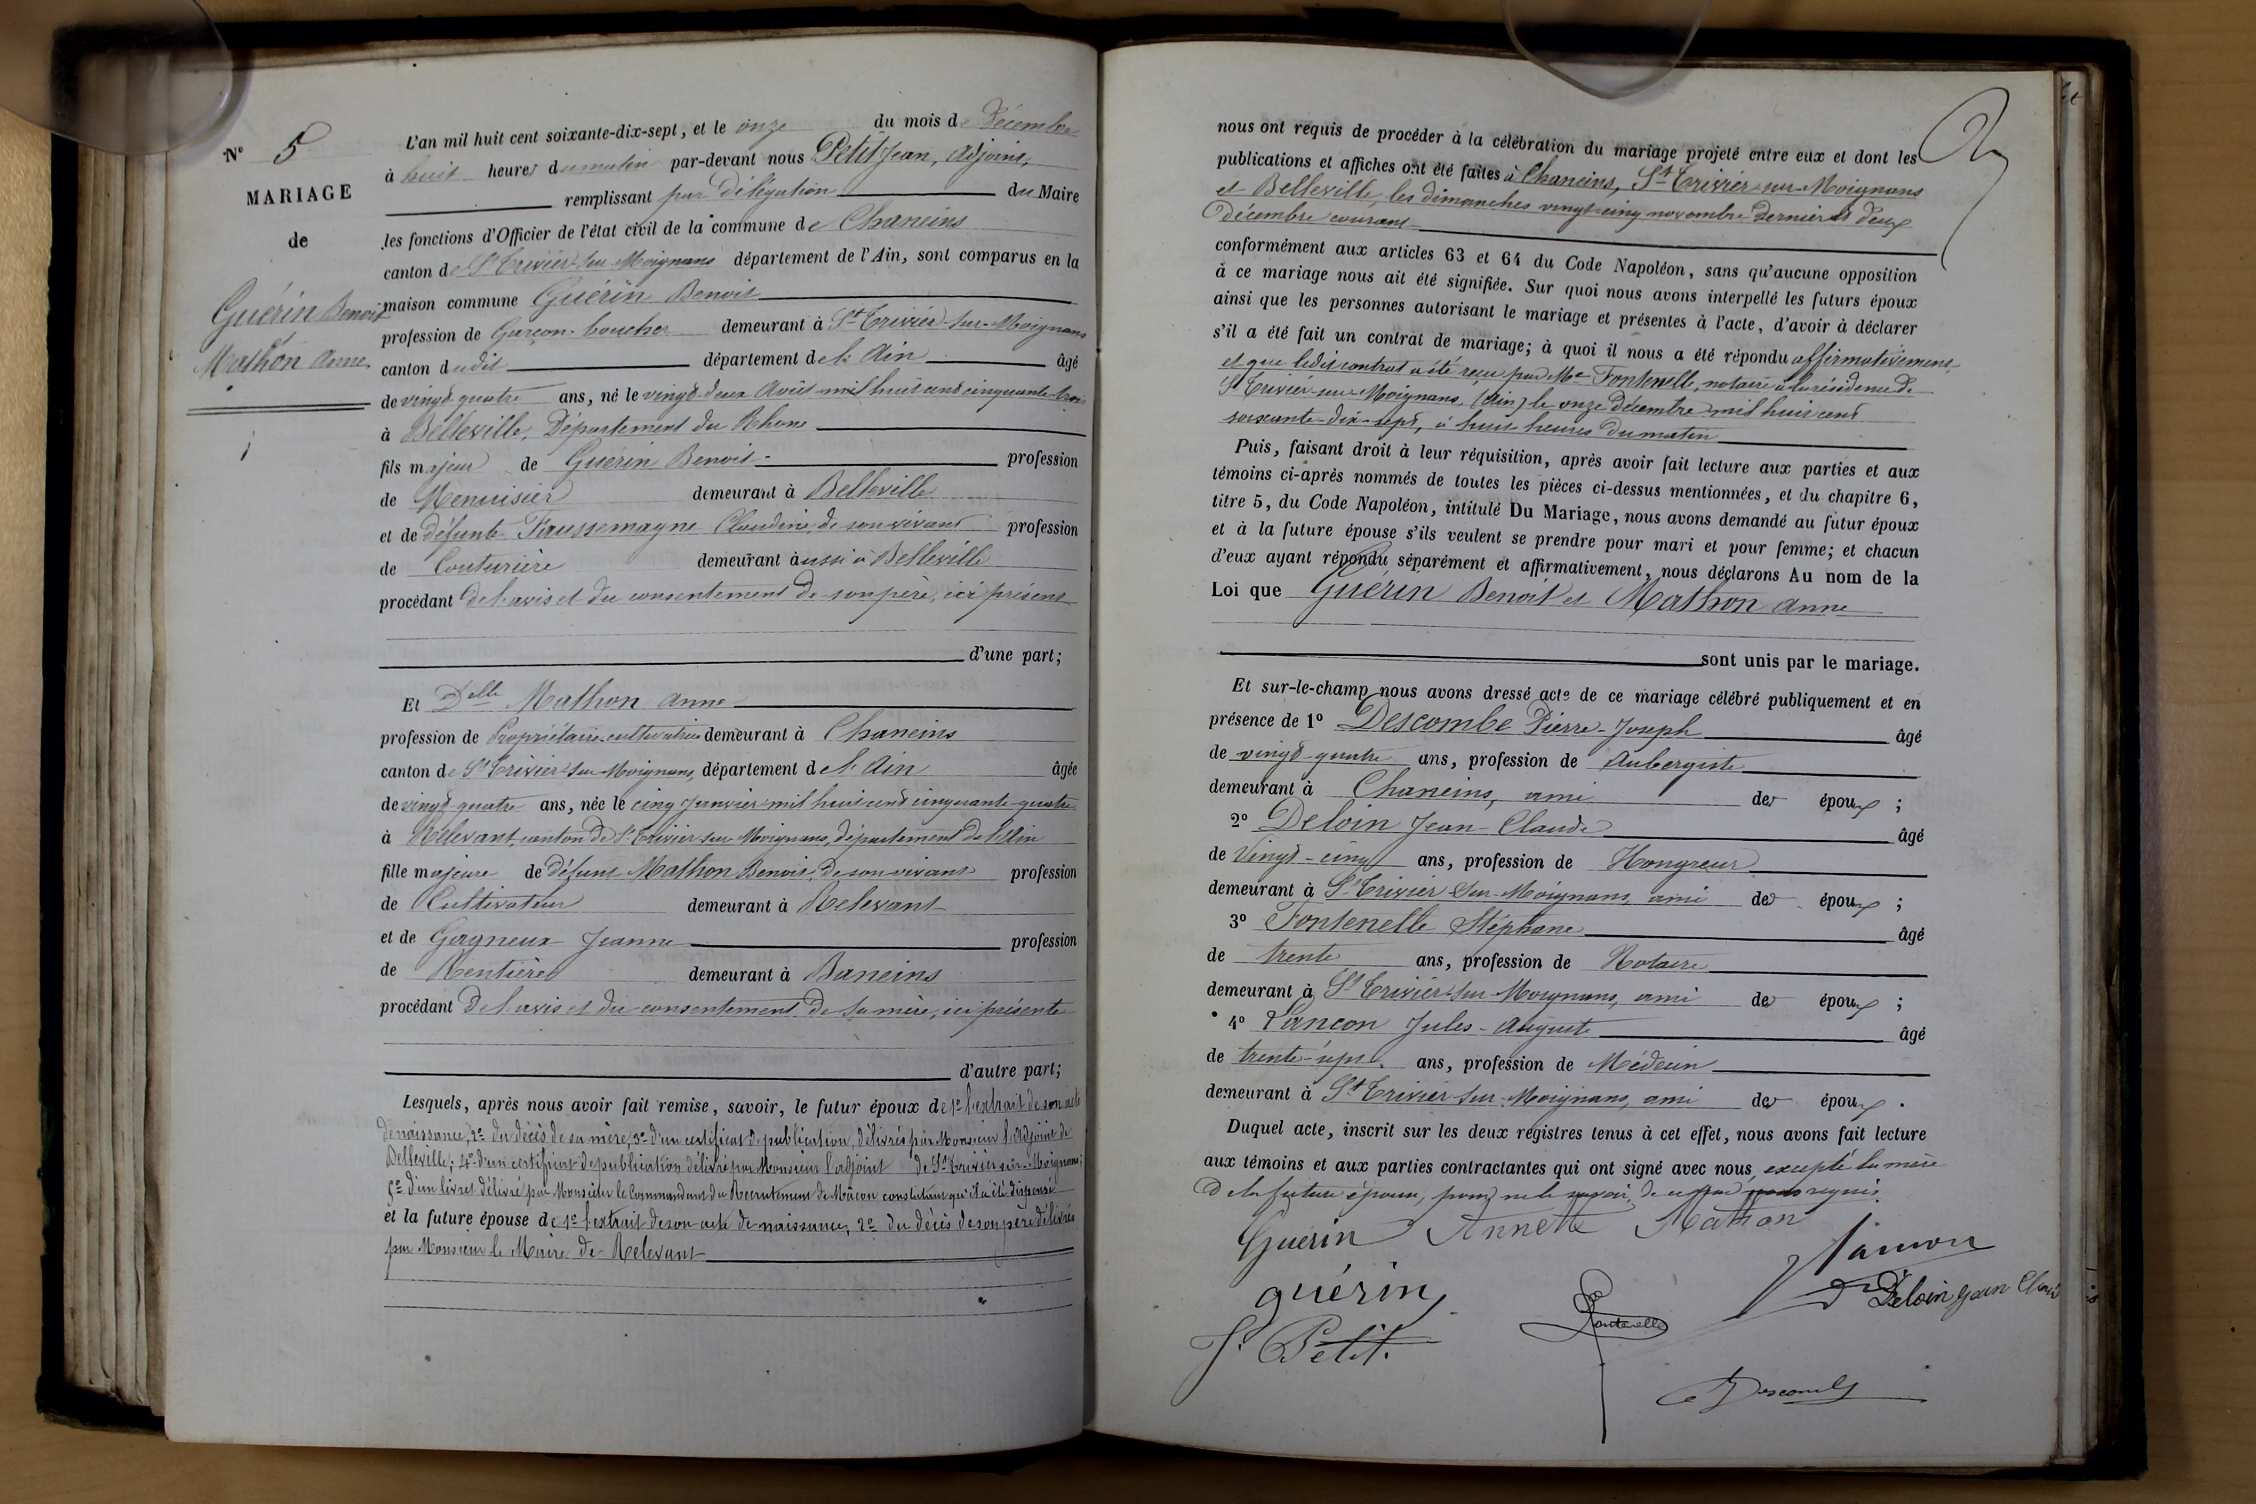 N° 5
MARIAGE
de
Guérin Benoit
et
Mathon Anne
L'an mil huit cent soixante-dix-sept, et le onze du mois de Décembre
à huit heures du matin par-devant nous Petit Jean, adjoint,
remplissant par Délégation du Maire
les fonctions d'Officier de l'état civil de la commune de Chaneins
canton de St Trivier-sur-Moignans département de l'Ain, sont comparus en la
maison commune Guérin Benoit
profession de Garçon-boucher demeurant à St Trivier-sur-Moignans
canton dudit département de l'Ain âgé
de vingt quatre ans, né le vingt-deux Août mil huit cent cinquante-trois
à Belleville, Département du Rhône
fils majeur de Guérin Benoit profession
de Menuisier demeurant à Belleville
et de défunte Faussemagne Claudine, de son vivant profession
de Couturière demeurant aussi à Belleville
procédant de l'avis et du consentement de son père, ici présent
d'une part;
Et Delle Mathon Anne
profession de Propriétaire-cultivatrice demeurant à Chaneins
canton de St Trivier-sur-Moignans, département de l'Ain âgée
de vingt-quatre ans, née le cinq Janvier mil huit cent cinquante-quatre
à Relevant, canton de St Trivier-sur-Moignans, département de l'Ain
fille majeure de défunt Mathon Benoit, de son vivant profession
de Cultivateur demeurant à Relevant
et de Gagneux Jeanne profession
de Rentière demeurant à Baneins
procédant de l'avis et du consentement de sa mère, ici présente
d'autre part;
Lesquels, après nous avoir fait remise, savoir, le futur époux de 1° l'extrait de son acte
de naissance, 2° du décès de sa mère, 3° d'un certificat de publication, délivrés par Monsieur l'Adjoint de
Belleville; 4° d'un certificat de publication délivré par Monsieur l'adjoint de St Trivier-sur-Moignans;
5° d'un livret délivré par Monsieur le Commandant du Recrutement de Mâcon constatant qu'il a été dispensé
et la future épouse de 1° l'extrait de son acte de naissance, 2° du décès de son père délivrés
par Monsieur le Maire de Relevant
nous ont requis de procéder à la célébration du mariage projeté entre eux et dont les
publications et affiches ont été faites à Chaneins, St Trivier-sur-Moignans
et Belleville, les dimanches vingt-cinq novembre dernier et deux
décembre courant
conformément aux articles 63 et 64 du Code Napoléon, sans qu'aucune opposition
à ce mariage nous ait été signifiée. Sur quoi nous avons interpellé les futurs époux
ainsi que les personnes autorisant le mariage et présentes à l'acte, d'avoir à déclarer
s'il a été fait un contrat de mariage; à quoi il nous a été répondu affirmativement,
et que ledit contrat a été reçu par Me Fontenelle, notaire à la résidence de
St Trivier-sur-Moignans, (Ain) le onze Décembre mil huit cent
soixante-dix-sept, à huit heures du matin
Puis, faisant droit à leur réquisition, après avoir fait lecture aux parties et aux
témoins ci-après nommés de toutes les pièces ci-dessus mentionnées, et du chapitre 6,
titre 5, du Code Napoléon, intitulé Du Mariage, nous avons demandé au futur époux
et à la future épouse s'ils veulent se prendre pour mari et pour femme; et chacun
d'eux ayant répondu séparément et affirmativement, nous déclarons Au nom de la
Loi que Guérin Benoit et Mathon Anne
sont unis par le mariage.
Et sur-le-champ nous avons dressé acte de ce mariage célébré publiquement et en
présence de 1° Descombe Pierre-Joseph âgé
de vingt-quatre ans, profession de Aubergiste
demeurant à Chaneins, ami des époux ;
2° Deloin Jean-Claude âgé
de Vingt-cinq ans, profession de Hongreur
demeurant à St Trivier-sur-Moignans, ami des époux ;
3° Fontenelle Stéphane âgé
de trente ans, profession de Notaire
demeurant à St Trivier-sur-Moignans, ami des époux ;
4° Lançon Jules-Auguste âgé
de trente-sept ans, profession de Médecin
demeurant à St Trivier-sur-Moignans, ami des époux .
Duquel acte, inscrit sur les deux registres tenus à cet effet, nous avons fait lecture
aux témoins et aux parties contractantes qui ont signé avec nous, excepté la mère
de la future épouse, pour ne le savoir, de ce requis.
Guérin Annette Mathon
Lançon
guérin Dr Déloin Jean Claude
Fontenelle
J. Petit.
Descombe